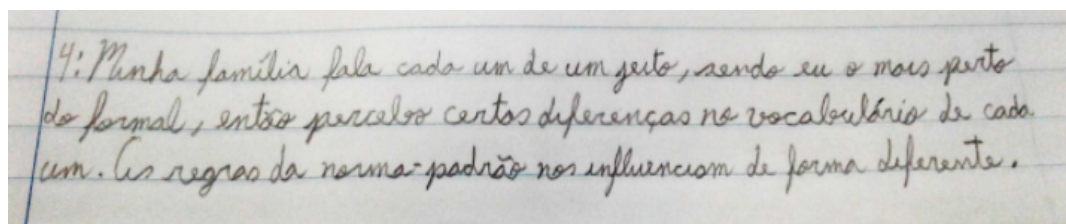 4: Minha família fala cada um de um jeito, sendo eu o mais perto
do formal, então percebo certas diferenças no vocabulário de cada
um. As regras da norma-padrão nos influenciam de forma diferente.